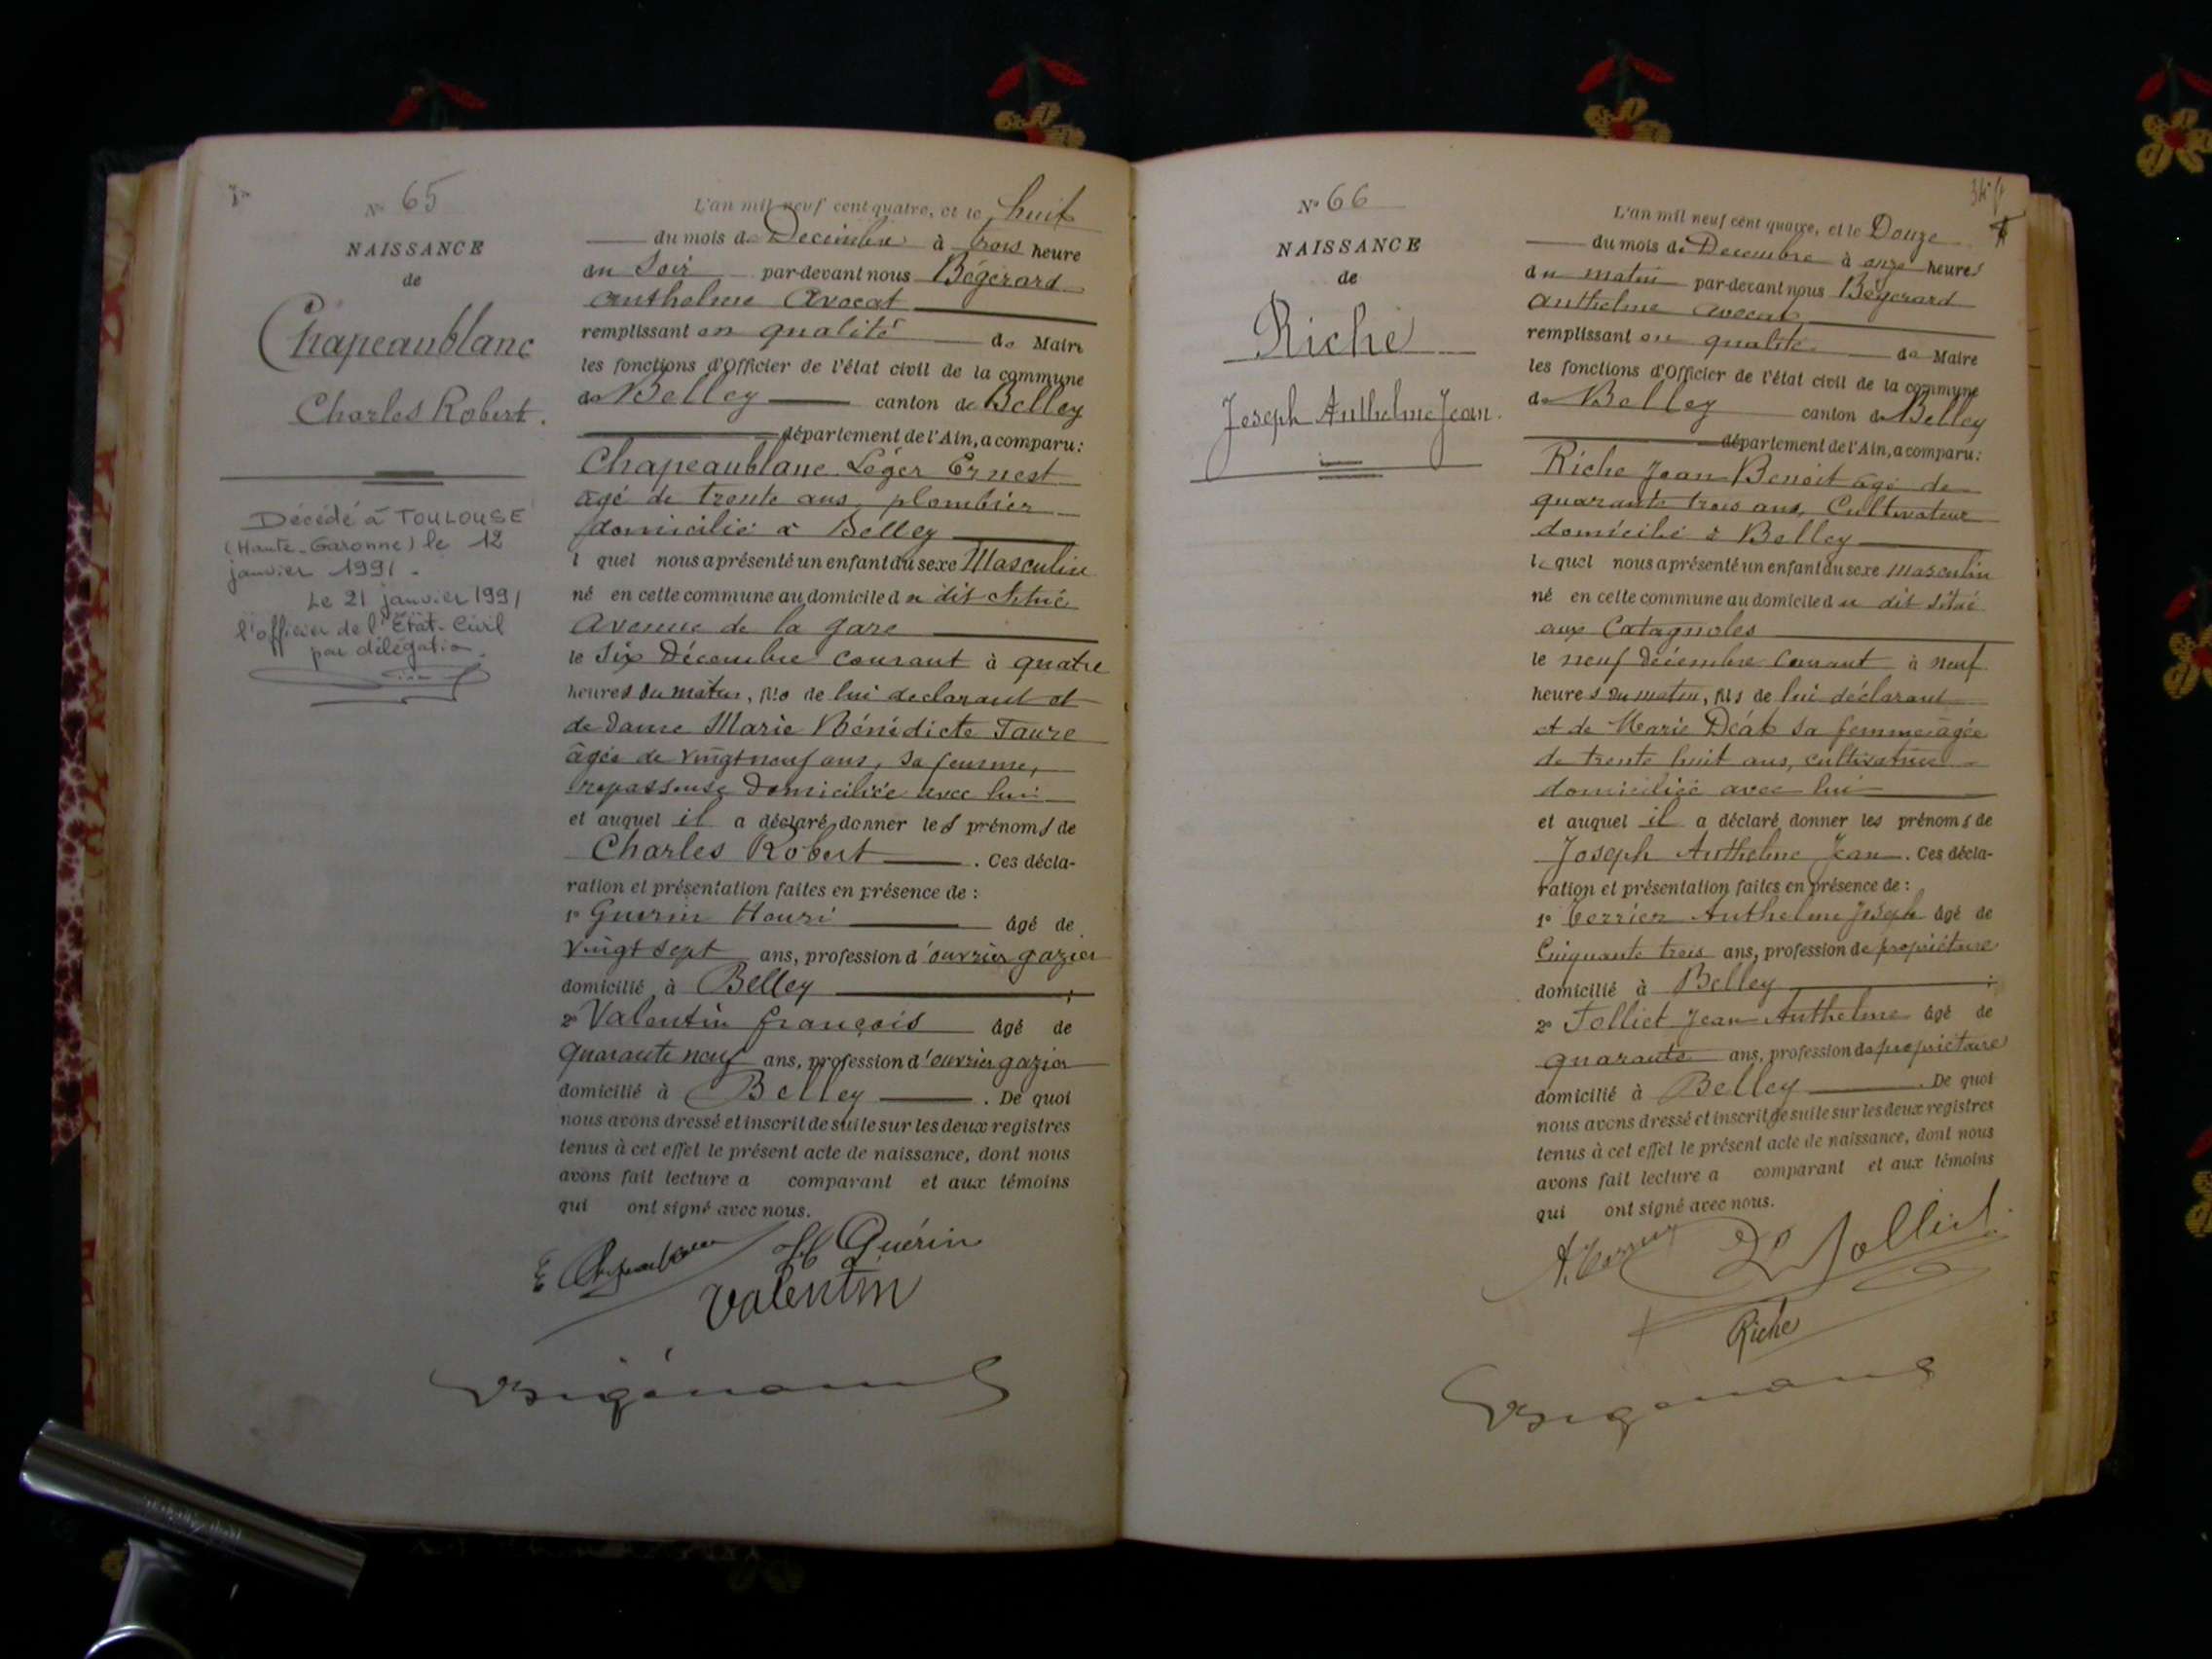 Nº 65
NAISSANCE
de
Chapeaublanc
Charles Robert.
Décédé à TOULOUSE
(Haute-Garonne) le 12
janvier 1991.
Le 21 janvier 1991
l'officier de l'État-Civil
par délégation.
L'an mil neuf cent quatre, et le huit
du mois de Décembre à trois heure
du Soir par-devant nous Bégérard
Anthelme Avocat
remplissant en qualité de Maire
les fonctions d'Officier de l'état civil de la commune
de Belley canton de Belley
département de l'Ain, a comparu:
Chapeaublanc Léger Ernest
âgé de trente ans, plombier
domicilié à Belley
l quel nous a présenté un enfant du sexe Masculin
né en cette commune au domicile du dit situé
Avenue de la gare
le Six Décembre courant à quatre
heures du matin, fils de lui déclarant et
de dame Marie Bénédicte Faure
âgée de vingt neuf ans, sa femme,
repasseuse domiciliée avec lui
et auquel il a déclaré donner les prénoms de
Charles Robert. Ces décla-
ration et présentation faites en présence de :
1º Guerin Henri âgé de
vingt sept ans, profession d'ouvrier gazier
domicilié à Belley ;
2º Valentin François âgé de
quarante neuf ans, profession d'ouvrier gazier
domicilié à Belley. De quoi
nous avons dressé et inscrit de suite sur les deux registres
tenus à cet effet le présent acte de naissance, dont nous
avons fait lecture a comparant et aux témoins
qui ont signé avec nous.
H Guérin
Valentin
Bégérard
Nº 66
NAISSANCE
de
Riche
Joseph Anthelme Jean.
L'an mil neuf cent quatre, et le Douze
du mois de Décembre à onze heures
du matin par-devant nous Bégerard
Anthelme avocat
remplissant en qualité de Maire
les fonctions d'Officier de l'état civil de la commune
de Belley canton de Belley
département de l'Ain, a comparu:
Riche Jean Benoit âgé de
quarante trois ans, Cultivateur
domicilié à Belley
le quel nous a présenté un enfant du sexe masculin
né en cette commune au domicile du dit situé
aux Catagnoles
le neuf décembre courant à neuf
heures du matin, fils de lui déclarant
et de Marie Déat sa femme âgée
de trente huit ans, cultivatrice
domiciliée avec lui
et auquel il a déclaré donner les prénoms de
Joseph Anthelme Jean. Ces décla-
ration et présentation faites en présence de :
1º Verrier Anthelme Joseph âgé de
Cinquante trois ans, profession de propriétaire
domicilié à Belley ;
2º Tolliet Jean Anthelme âgé de
quarante ans, profession de propriétaire
domicilié à Belley. De quoi
nous avons dressé et inscrit de suite sur les deux registres
tenus à cet effet le présent acte de naissance, dont nous
avons fait lecture a comparant et aux témoins
qui ont signé avec nous.
Tolliet
Riche
Bégérard